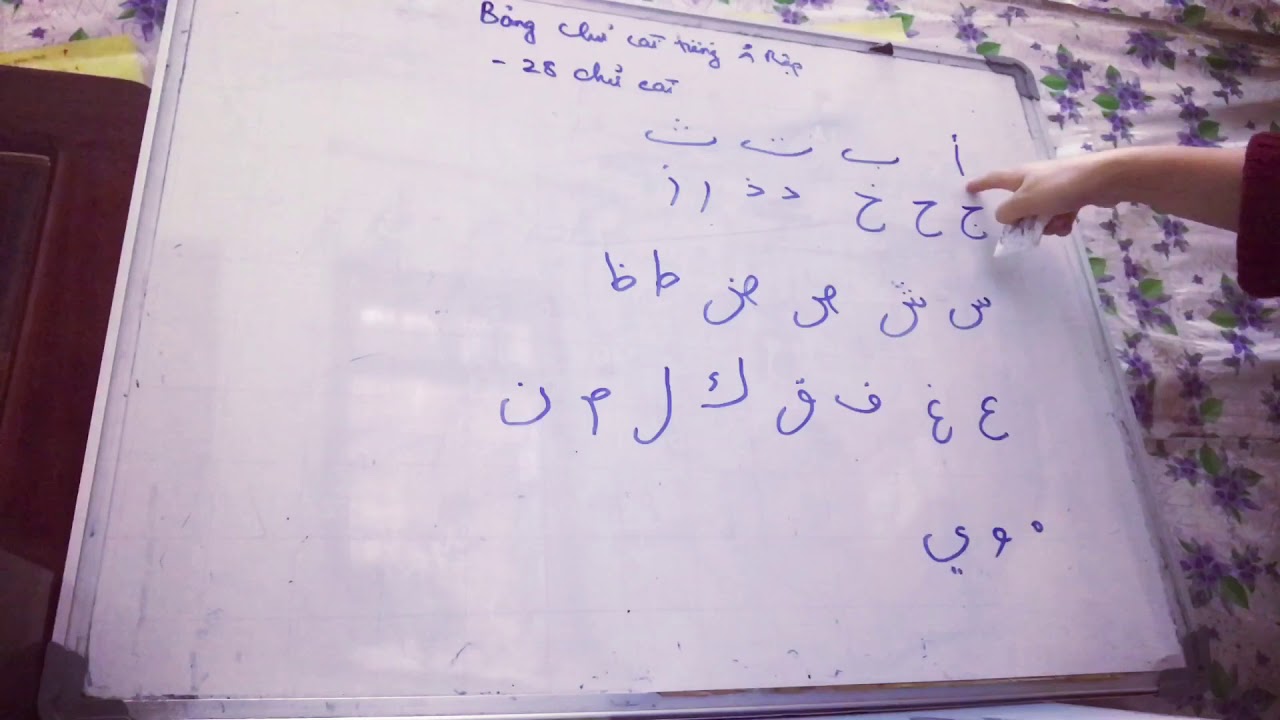 Bảng chữ cái tiếng Ả Rập
- 28 chữ cái
أ ب ت ث
ج ح خ د ذ ر ز
س ش ص ض ط ظ
ع غ ف ق ك ل م ن
ه و ي